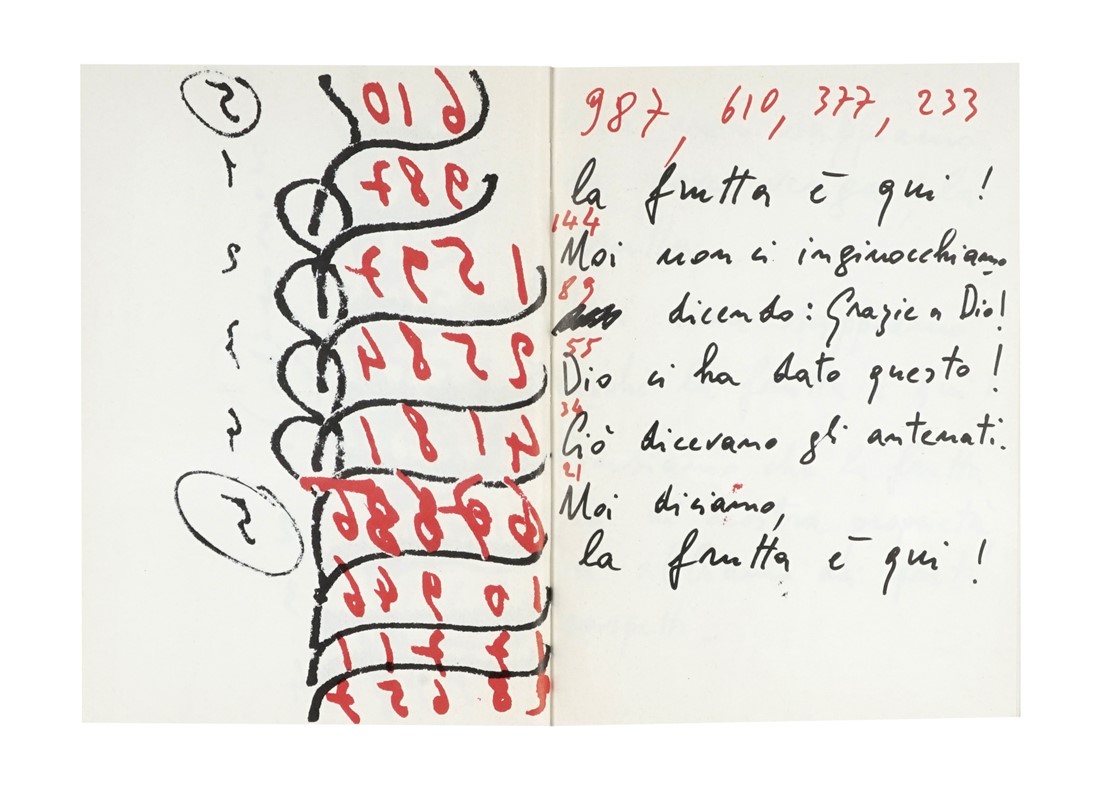 5
1
2
3
4
5
610
987
1597
2584
4181
10946
17711
28657
987, 610, 377, 233
la frutta è qui !
144
Noi non ci inginocchiamo
89
dicendo : Grazie a Dio!
55
Dio ci ha dato questo !
34
Ciò dicevano gli antenati.
21
Noi diciamo,
la frutta è qui !